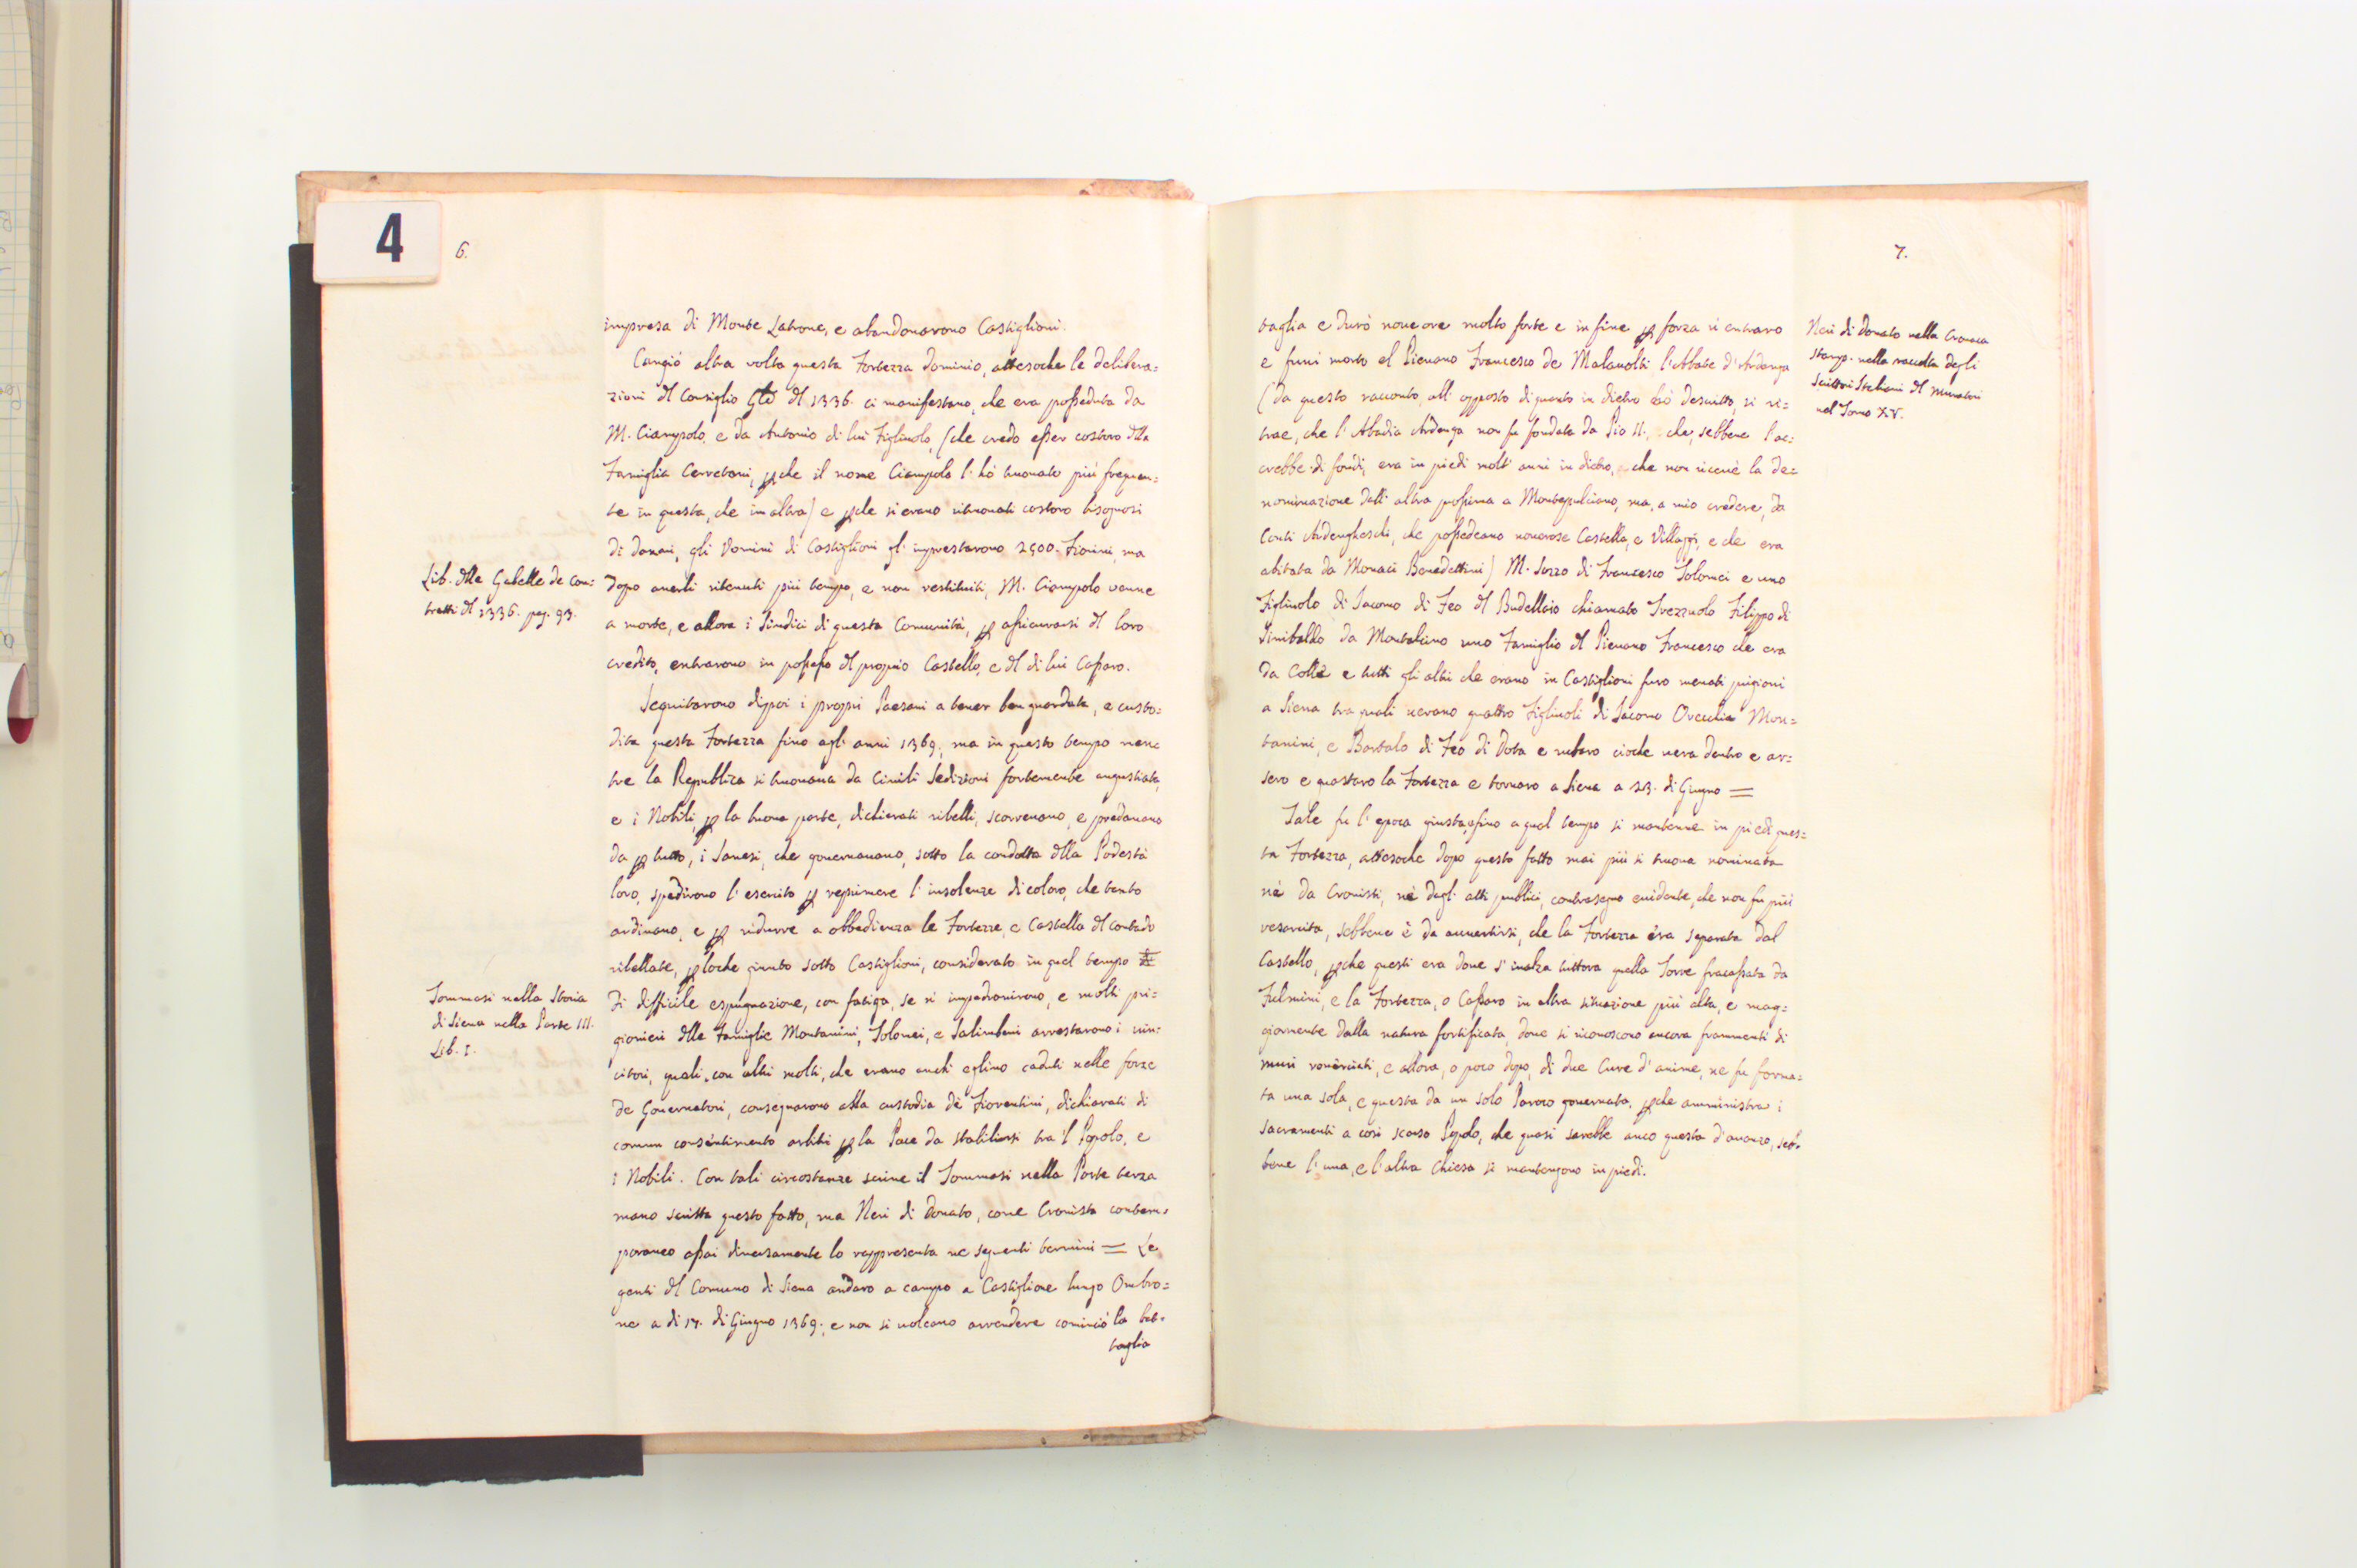 4
6.
impresa di Monte Latrone, e abandonarono Castiglioni.
Cangiò altra volta questa Fortezza dominio, attesoche le delibera=
zioni dl Consiglio dl 1336. ci manifestano, che era posseduta da
M. Ciampolo, e da Antonio di lui Figliuolo, (che credo esser costoro dlla
Famiglia Cerretani, pche il nome Ciampolo l'hò truouato più frequen=
te in questa, che in altra) e pche si erano ritrouati costoro bisognosi
di danari, gli Vomini di Castiglioni gl'imprestarono 2500. Fiorini, ma
dopo auerli ritenuti più tempo, e non restituiti, M. Ciampolo venne
a morte, e allora i Sindici di questa Comunità, p assicurarsi dl loro
credito, entrarono in possesso dl proprio Castello, e dl di lui Cassaro.
Lib. dlle Gabelle de Con=
tratti dl 1336. pag. 93.
Seguitarono dipoi i proprii Paesani a tener ben guardata, e custo=
dita questa Fortezza fino agl'anni 1369., ma in questo tempo men=
tre la Republica si truouaua da Ciuili Sedizioni fortemente angustiata,
e i Nobili, p la buona parte, dichiarati ribelli, scorreuano, e predauano
da p tutto, i Sanesi, che gouernauano, sotto la condotta dlla Podestà
loro, spedirono l'esercito p reprimere l'insolenze di coloro, che tanto
ardiuano, e p ridurre a obbedienza le Fortezze, e Castella dl Contado
ribellate, ploche giunto sotto Castiglioni, considerato in quel tempo
di difficile espugnazione, con fatiga, se ne impadronirono, e molti pri=
gionieri dlle Famiglie Montanini, Tolomei, e Salimbeni arrestarono i vin=
citori, quali, con altri molti, che erano anch'eglino caduti nelle forze
de Gouernatori, consegnarono alla custodia dè Fiorentini, dichiarati di
comun consentimento arbitri p la Pace da stabilirsi tra 'l Popolo, e
i Nobili. Con tali circostanze scriue il Tommasi nella Parte terza
mano scritta questo fatto, ma Neri di Donato, come Cronista contem=
poraneo assai diuersamente lo rappresenta ne seguenti termini = Le
genti dl Comuno di Siena andaro a campo a Castiglione lungo Ombro=
ne a di 17. di Giugno 1369., e non si uoleano arrendere cominciò la bat=
taglia
Tommasi nella Storia
di Siena nella Parte III.
Lib. I.
7.
taglia e durò noue ore molto forte e in fine p forza ui entraro
e funi morto el Pieuano Francesco de Malauolti l'Abbate d'Ardenga
(da questo racconto, all'opposto di quanto in dietro hò descritto, si ri=
trae, che l'Abadia Ardenga non fu fondata da Pio II., che, sebbene l'ac=
crebbe di fondi, era in piedi molt'anni in dietro, e che non riceuè la de=
nominazione dall'altra possima a Montepulciano, ma, a mio credere, da
Conti Ardengheschi, che possedeano numerose Castella, e Villaggi, e che era
abitata da Monaci Benedettini) M. Sozzo di Francesco Tolomei e uno
Figliuolo di Jacomo di Feo dl Budellaio chiamato Trezzuolo Filippo di
Simibaldo da Montalcino uno Famiglio dl Pieuano Francesco che era
da Colle e tutti gli altri che erano in Castiglioni furo menati prigioni
a Siena tra quali uerano quattro Figliuoli di Jacomo Mon=
tanini, e Bartalo di Feo di Dota e rubaro cioche uera dentro e ar=
sero e guastaro la Fortezza e tornaro a Siena a 23. di Giugno =
Tale fu l'epoca giusta, fino a qual tempo si mantenne in piedi ques=
ta Fortezza, attesoche dopo questo fatto mai più si truoua nominata
nè da Cronisti, nè dagl'atti publici, contrasegno euidente, che non fu più
resarcita, sebbene è da auuertirsi, che la Fortezza era separata dal
Castello, pche questi era doue s'inalza tuttora quella Torre fracassata da
Fulmini, e la Fortezza, o Cassaro in altra situazione più alta, e mag=
giormente dalla natura fortificata, doue si riconoscono ancora frammenti di
muri rouinati, e allora, o poco dopo, di due Cure d'anime, ne fu forma=
ta una sola, e questa da un solo Paroco gouernata, pche amministra i
Sacramenti a così scarso Popolo, che quasi sarebbe anco questa d'auanzo, seb=
bene l'una, e l'altra Chiesa si mantengono in piedi.
Neri di Donato nella Cronaca
stamp. nella raccolta degli
Scrittori Italiani dl Muratori
nel Tomo XV.